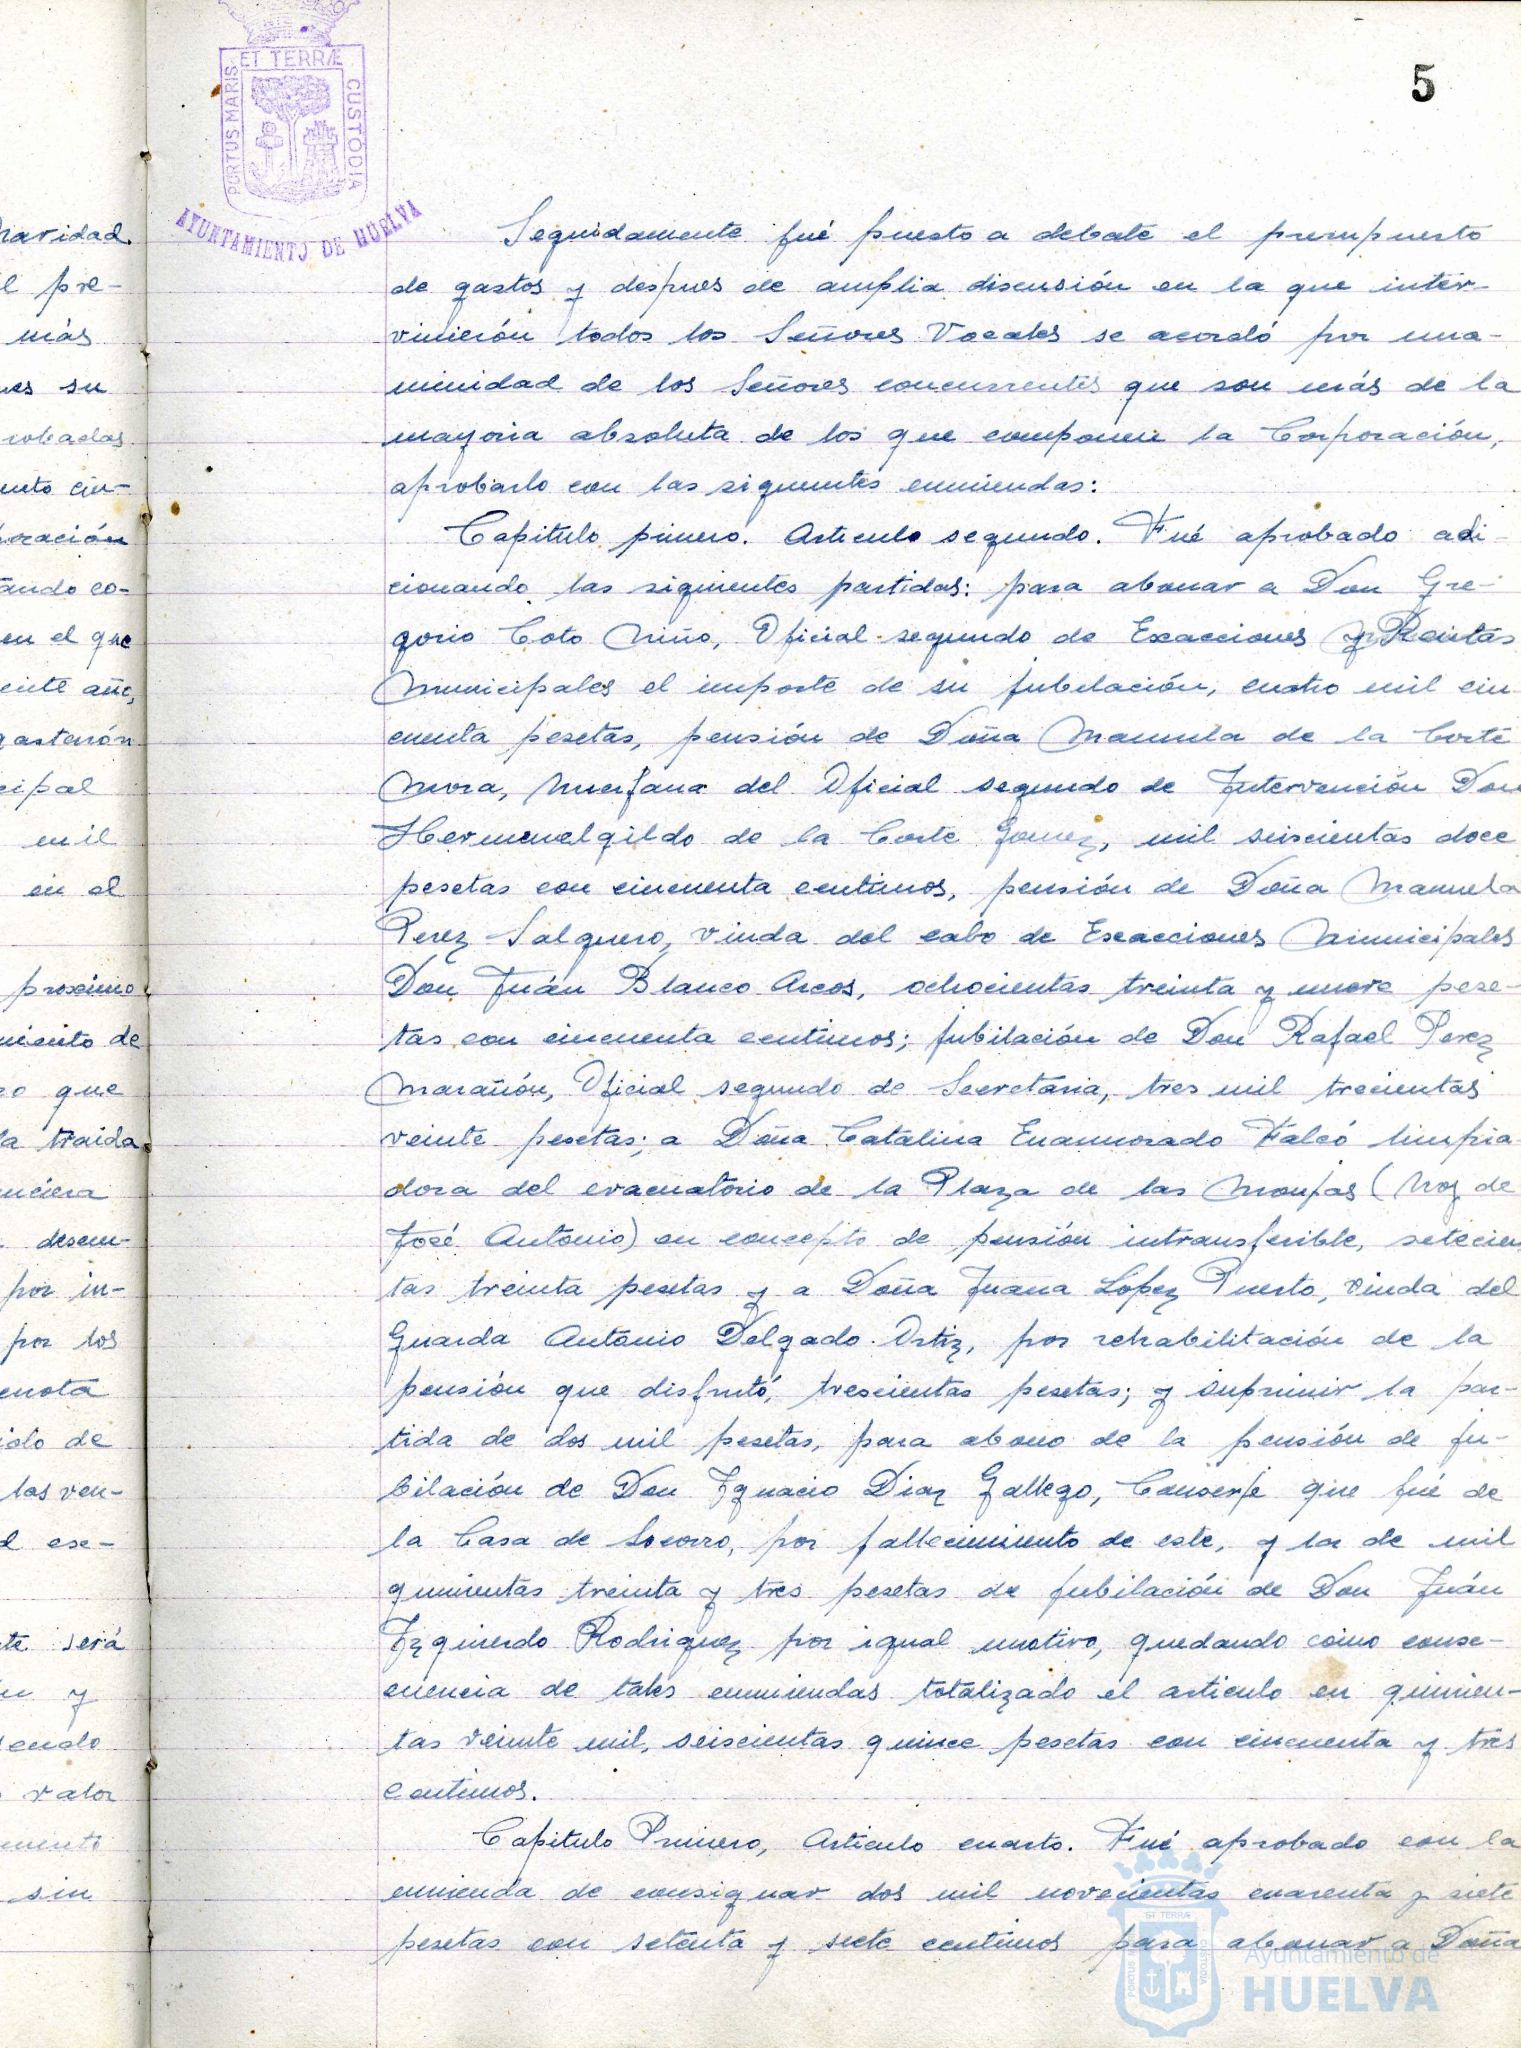 5
ET TERRÆ
PORTUS MARIS
CUSTODIA
AYUNTAMIENTO DE HUELVA
Seguidamente fué puesto a debate el presupuesto
de gastos y despues de amplia discusión en la que inter-
vinierón todos los Señores Vocales se acordó por una-
nimidad de los Señores concurrentes que son más de la
mayoria absoluta de los que componen la Corporación,
aprobarlo con las siguientes enmiendas:
Capitulo primero. Articulo segundo. Fué aprobado adi-
cionando las siguientes partidas: para abonar a Don Gre-
gorio Coto Niño, Oficial segundo de Exacciones y Rentas
Municipales el importe de su jubilación, cuatro mil cin-
cuenta pesetas, pensión de Doña Manuela de la Corte
Mora, huerfana del Oficial segundo de Intervención Don
Hermenelgildo de la Corte Gomez, mil seiscientas doce
pesetas con cincuenta centimos, pensión de Doña Manuela
Perez Salguero, viuda del cabo de Exacciones Municipales
Don Juán Blanco Arcos, ochocientas treinta y nueve pese-
tas con cincuenta centimos; jubilación de Don Rafael Perez
Marañón, Oficial segundo de Secretaria, tres mil trecientas
veinte pesetas; a Doña Catalina Enamorado Falcó limpia-
dora del evacuatorio de la Plaza de las Monjas (hoy de
José Antonio) en concepto de pensión intransferible, setecien-
tas treinta pesetas y a Doña Juana Lopez Puerto, viuda del
Guarda Antonio Delgado Ortiz, por rehabilitación de la
pensión que disfrutó, trescientas pesetas; y suprimir la par-
tida de dos mil pesetas, para abono de la pensión de ju-
bilación de Don Ignacio Diaz Gallego, Conserje que fué de
la Casa de Socorro, por fallecimiento de este, y la de mil
quinientas treinta y tres pesetas de jubilación de Don Juán
Izquierdo Rodriguez por igual motivo, quedando como conse-
cuencia de tales enmiendas totalizado el articulo en quinien-
tas veinte mil, seiscientas quince pesetas con cincuenta y tres
centimos.
Capitulo Primero, Articulo cuarto. Fué aprobado con la
enmienda de consignar dos mil novecientas cuarenta y siete
pesetas con setenta y siete centimos para abonar a Doña
Ayuntamiento de
HUELVA